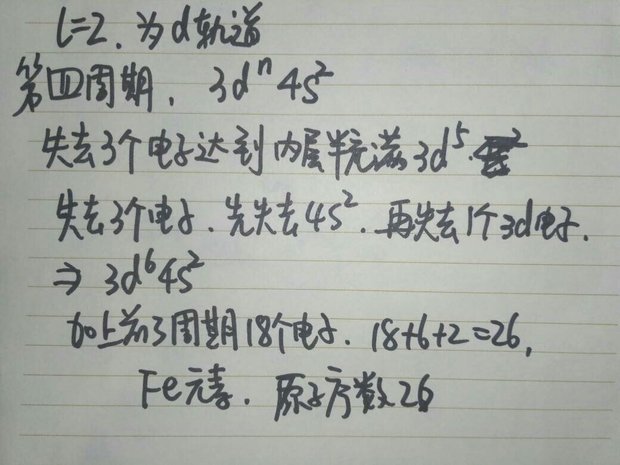 l=2. 为d轨道
第四周期. 3dⁿ4s²
失去3个电子达到内层半充满3d⁵.
失去3个电子. 先失去4s². 再失去1个3d电子.
⇒ 3d⁶4s²
加上前3周期18个电子. 18+6+2=26,
Fe元素. 原子序数26